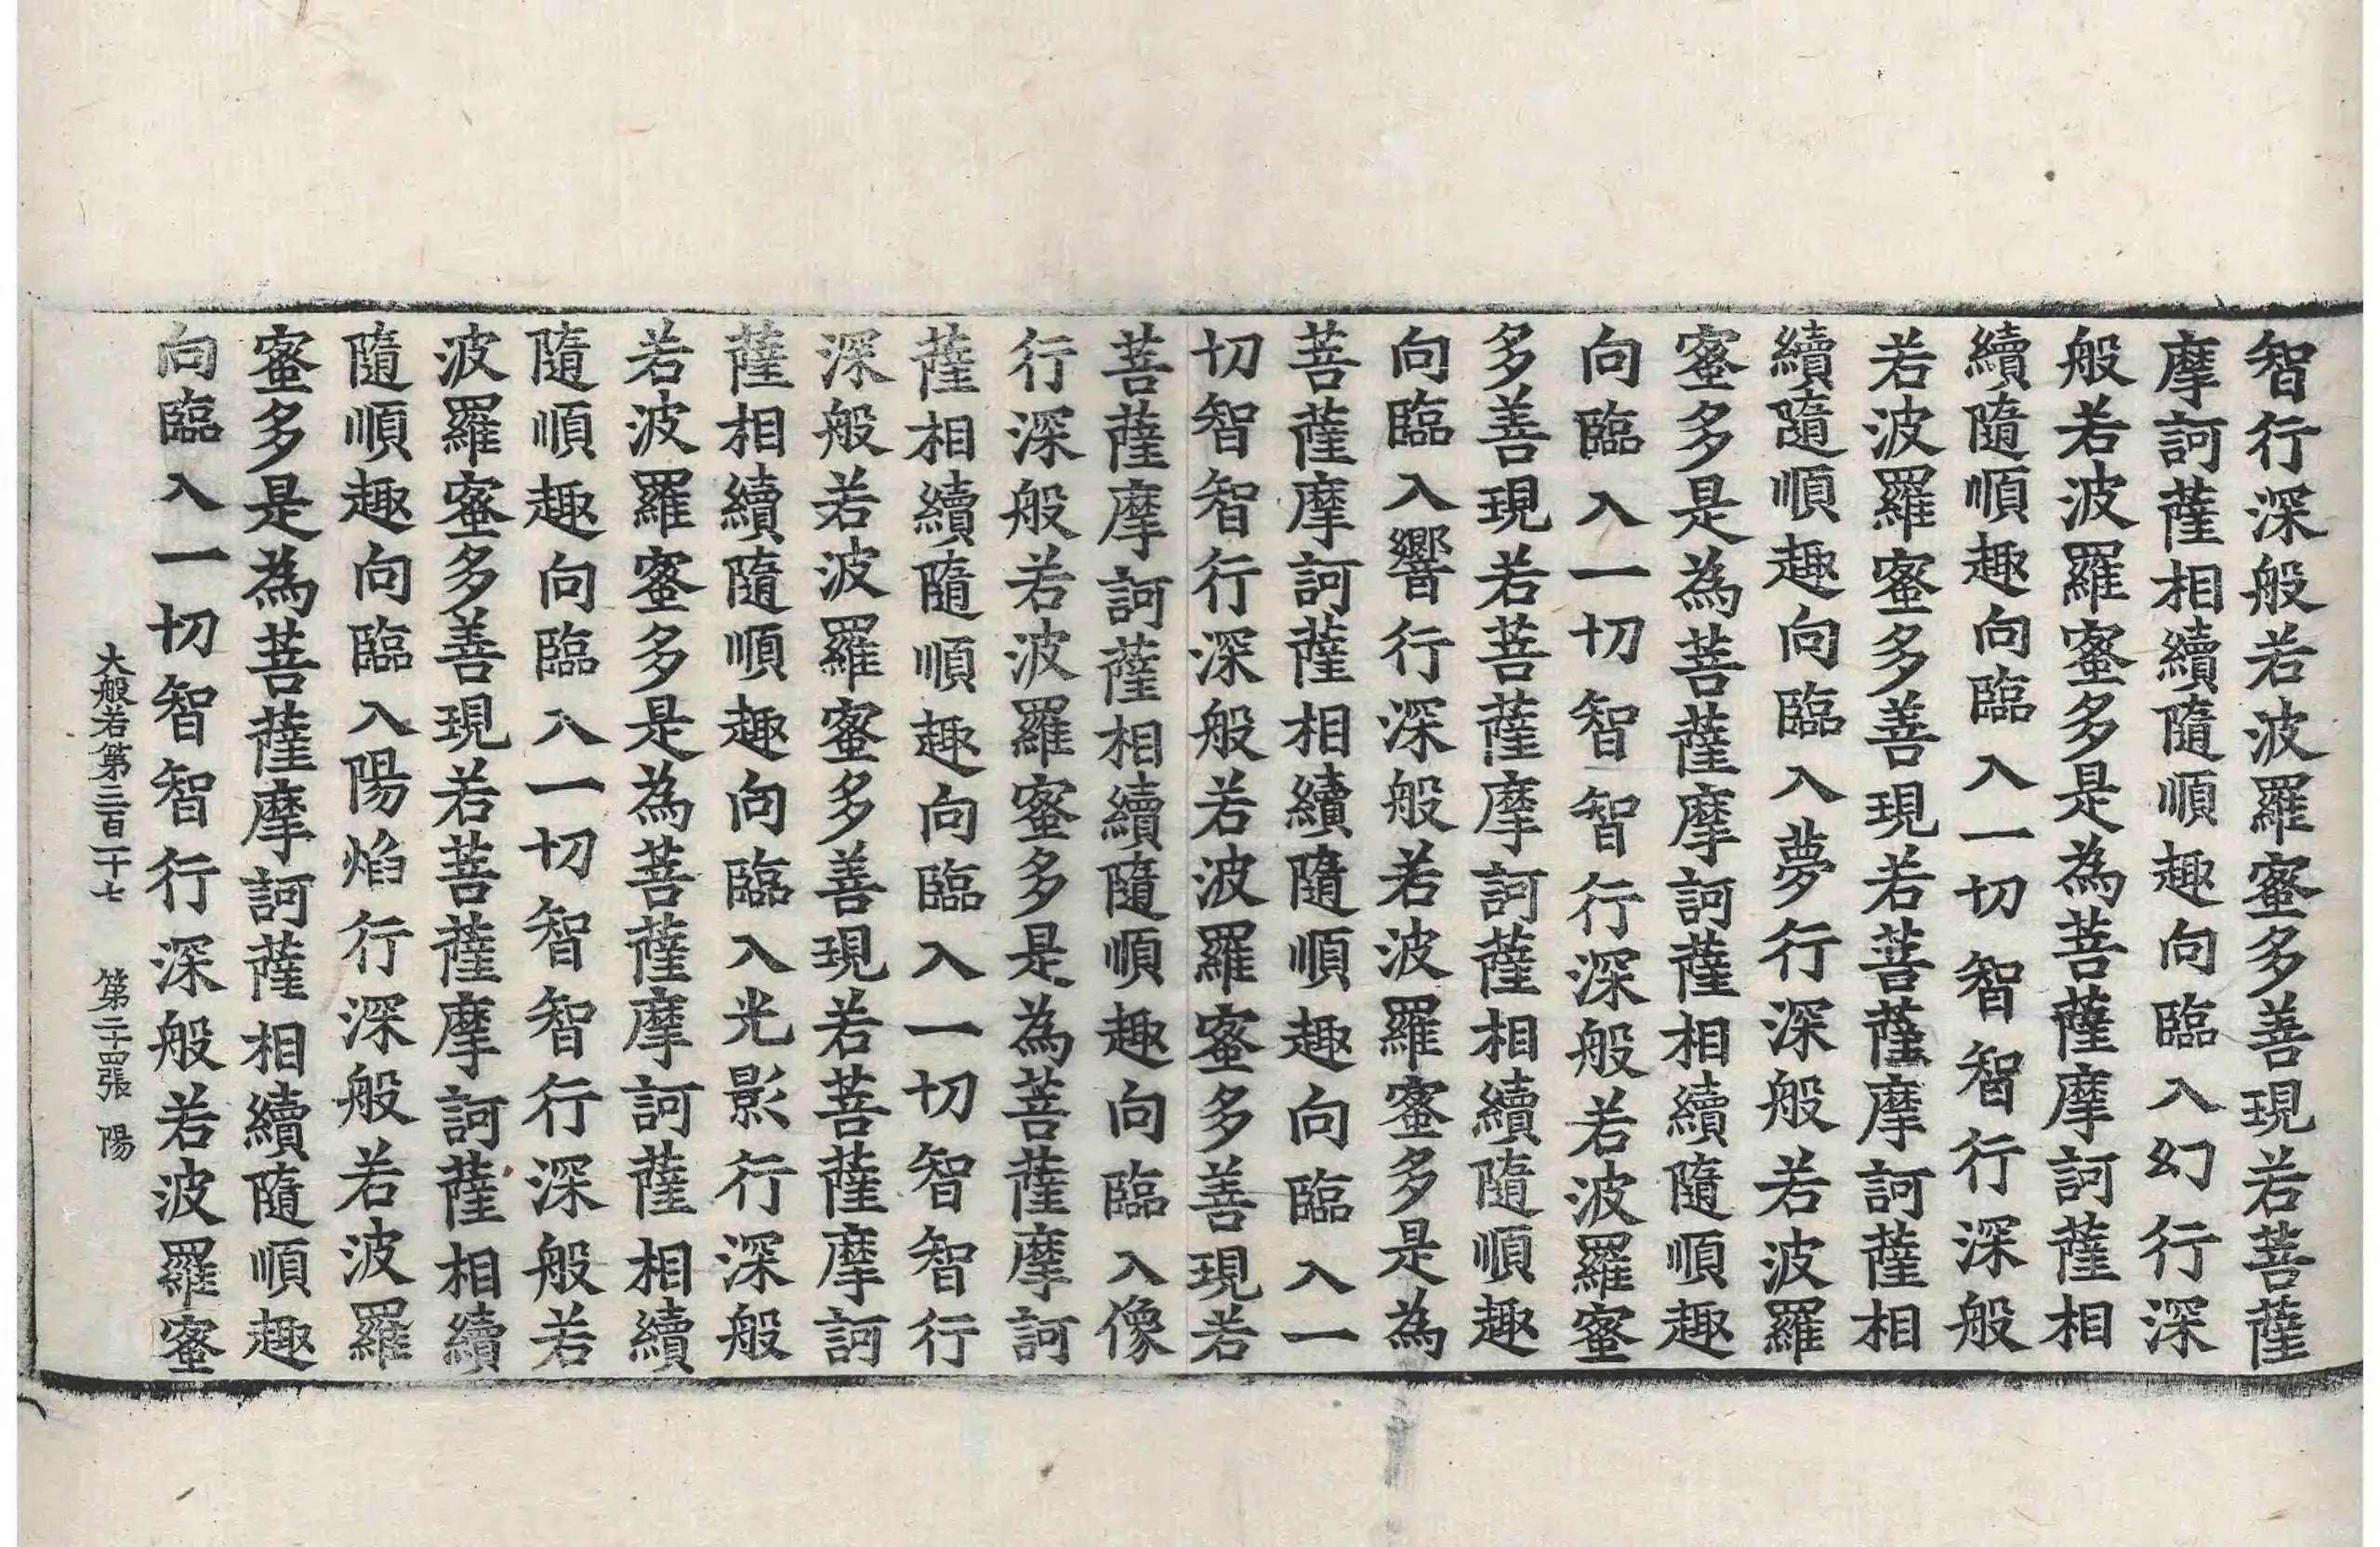 智行深般若波羅蜜多善現若菩薩
摩訶薩相續隨順趣向臨入幻行深
般若波羅蜜多是為菩薩摩訶薩相
續隨順趣向臨入一切智智行深般
若波羅蜜多善現若菩薩摩訶薩相
續隨順趣向臨入夢行深般若波羅
蜜多是為菩薩摩訶薩相續隨順趣
向臨入一切智智行深般若波羅蜜
多善現若菩薩摩訶薩相續隨順趣
向臨入響行深般若波羅蜜多是為
菩薩摩訶薩相續隨順趣向臨入一
切智智行深般若波羅蜜多善現若
菩薩摩訶薩相續隨順趣向臨入像
行深般若波羅蜜多是為菩薩摩訶
薩相續隨順趣向臨入一切智智行
深般若波羅蜜多善現若菩薩摩訶
薩相續隨順趣向臨入光影行深般
若波羅蜜多是為菩薩摩訶薩相續
隨順趣向臨入一切智智行深般若
波羅蜜多善現若菩薩摩訶薩相續
隨順趣向臨入陽焰行深般若波羅
蜜多是為菩薩摩訶薩相續隨順趣
向臨入一切智智行深般若波羅蜜
大般若第三百二十七 第二十四張 陽